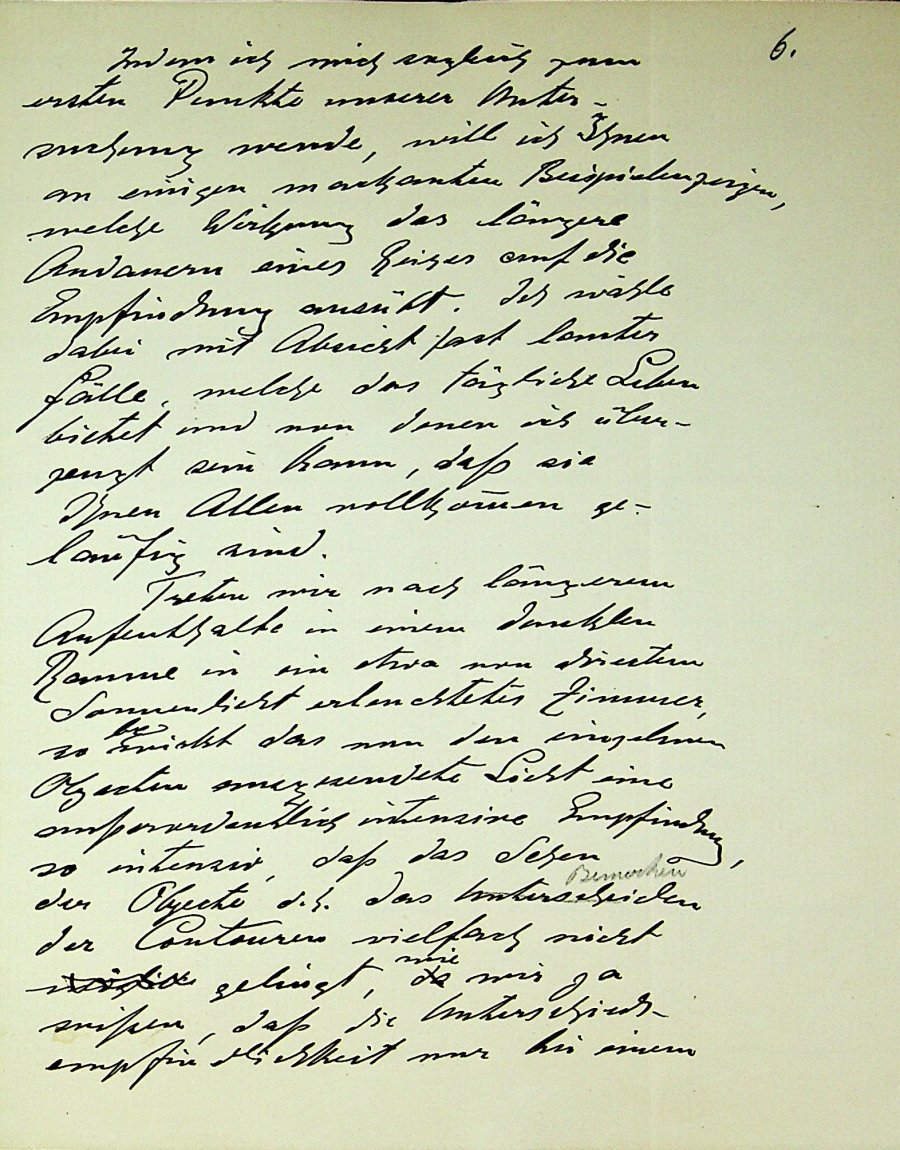 6.
Indem ich mich sogleich zum
ersten Punkte unserer Unter-
suchung wende, will ich Ihnen
an einigen markanten Beispielen zeigen,
welche Wirkung das längere
Andauern eines Reizes auf die
Empfindung ausübt. Ich wähle
dabei mit Absicht fast lauter
Fälle, welche das tägliche Leben
bietet und von denen ich über-
zeugt sein kann, daß sie
Ihnen Allen vollkom̄en ge-
läufig sind.
Treten wir nach längerem
Aufenthalte in einem dunklen
Raume in ein etwa von directem
Sonnenlicht erleuchtetes Zimmer,
so bewirkt das von den einzelnen
Objecten ausgesendete Licht eine
außerordentlich intensive Empfindung,
so intensiv, daß das Sehen
Bemerken
der Objecte d.h. das Unterscheiden
der Contouren vielfach nicht
möglich gelingt, da wie wir ja
wißen, daß die Unterschieds-
empfindlichkeit nur bei einem